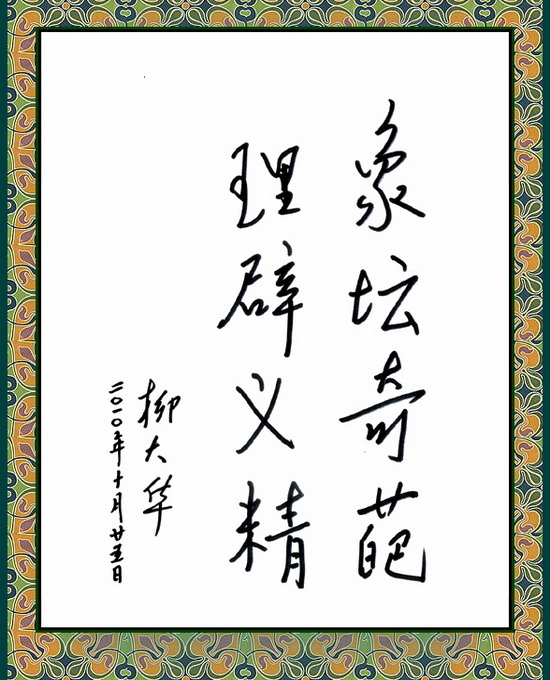 象坛奇葩
理辟义精
柳大华
二〇一〇年十月廿五日